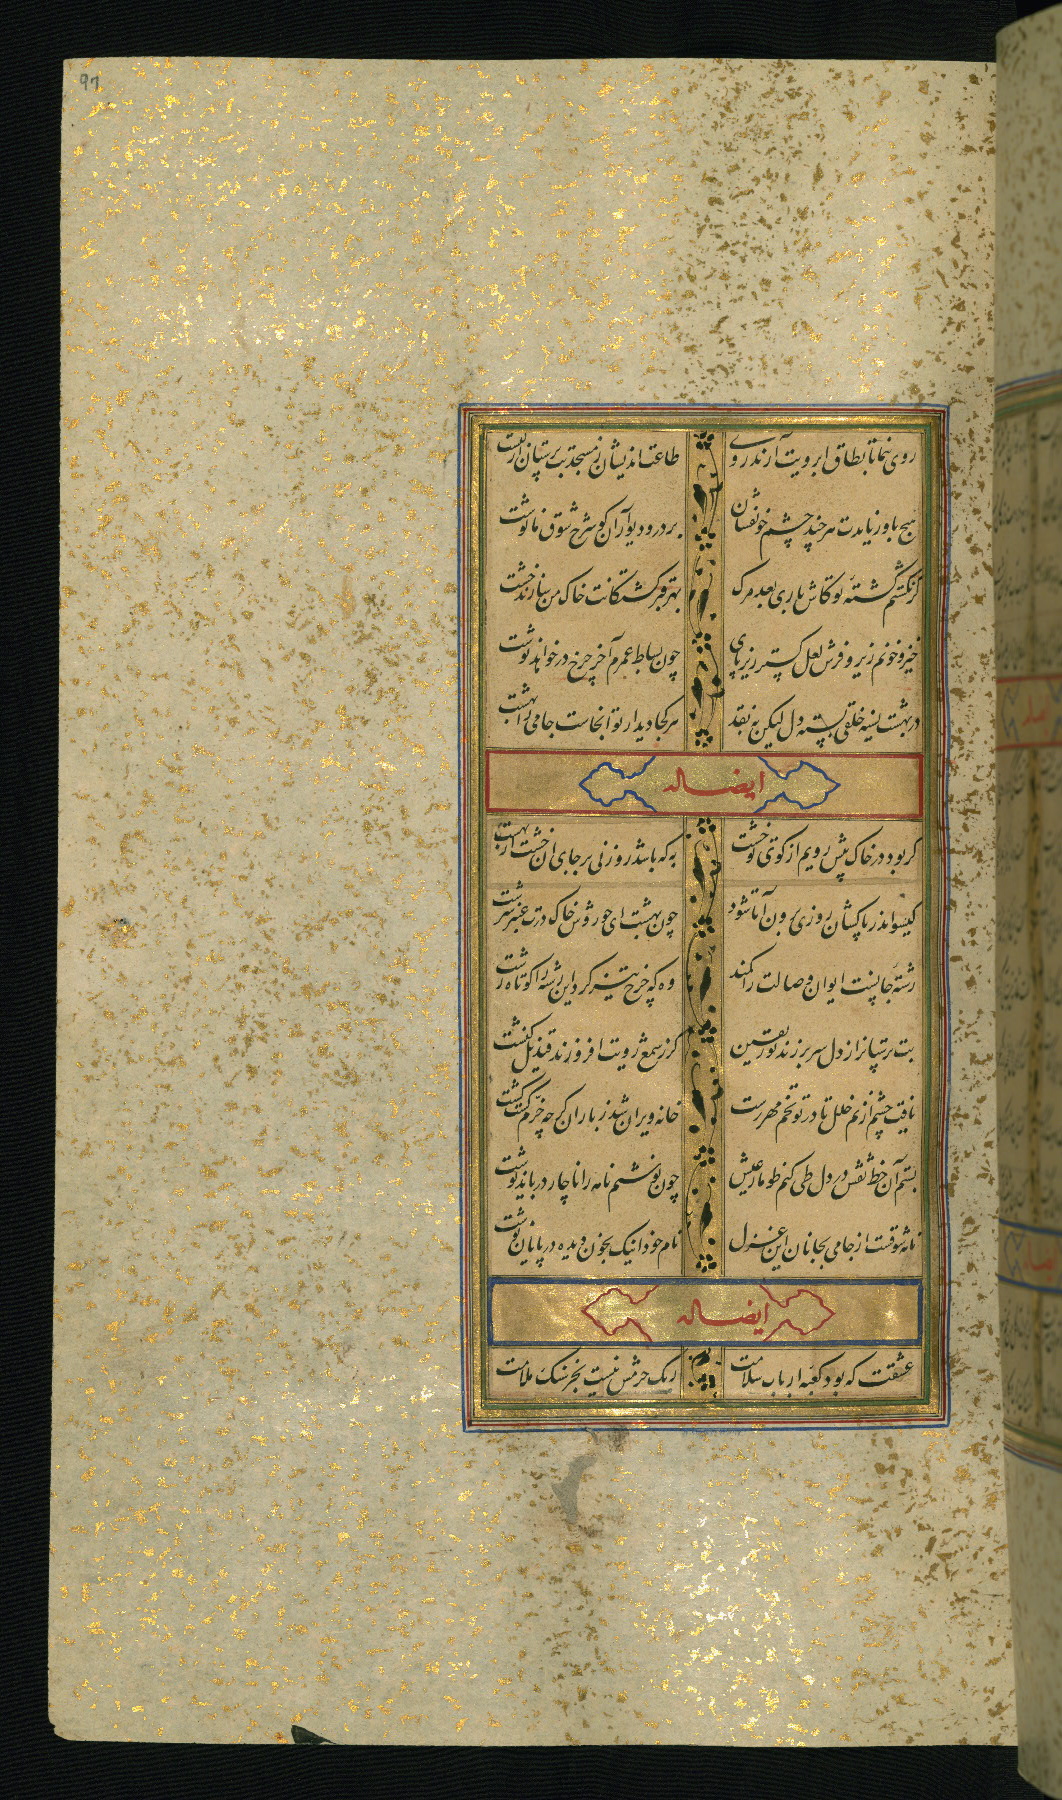 97
روی نما تا بطاق ابرویت آرند روی طاعت اندیشان ز مسجد بت پرستان از کنشت
هیچ باور نایدت هر چند چشم خونفشان بر در و دیوار آن کو شرح شوق ما نوشت
گر نگشتم کشته تو کاش باری بعد مرگ بهر قبر کشتگانت خاک من سازند خشت
خیز و خونم ریز و فرش لعل گستر زیر پای چون بساط عمرم آخر چرخ در خواهد نوشت
در بهشت نسیه خلقی بسته دل لیکن به نقد هر کجا دیدار تو آنجاست جامی را بهشت
ایضا له
گر بود در خاک پیش رویم از کوی تو خشت به که باشد روزنی بر جای آن خشت از بهشت
گیسو اندر پا کشان روزی برون آ تا شود چون بهشت ای حوروش خاک درت عنبر سرشت
رشته جانست ایوان وصالت را کمند وه که چرخ تیز گرد این رشته را کوتاه رشت
بت پرستانرا ز دل سر برزند نور یقین گر ز شمع رویت افروزند قندیل کنشت
نیست چشم از نم خلل تا در تو تخم مهر رست خانه ویران شد ز باران گر چه خرم گشت کشت
بستم آن خط نقش در دل طی کنم طومار عیش چون نوشتم نامه را ناچار درباید نوشت
نامه شوقست از جامی بجانان این غزل نام خود اینک بخون دیده در پایان نوشت
ایضا له
عشقت که بود کعبه ارباب سلامت ریک حرمش نیست بجز سنک ملامت